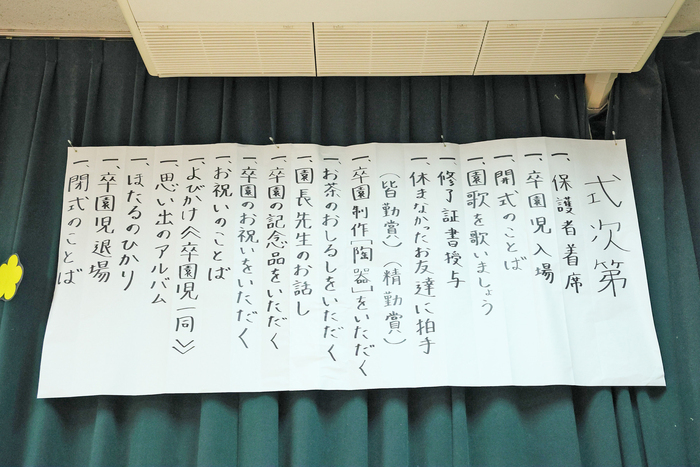 式次第
一、保護者着席
一、卒園児入場
一、開式のことば
一、園歌を歌いましょう
一、修了証書授与
一、休まなかったお友達に拍手
(皆勤賞)(精勤賞)
一、卒園制作[陶器]をいただく
一、お茶のおしるしをいただく
一、園長先生のお話し
一、卒園の記念品をいただく
一、卒園のお祝いをいただく
一、お祝いのことば
一、よびかけ《卒園児一同》
一、思い出のアルバム
一、ほたるのひかり
一、卒園児退場
一、閉式のことば